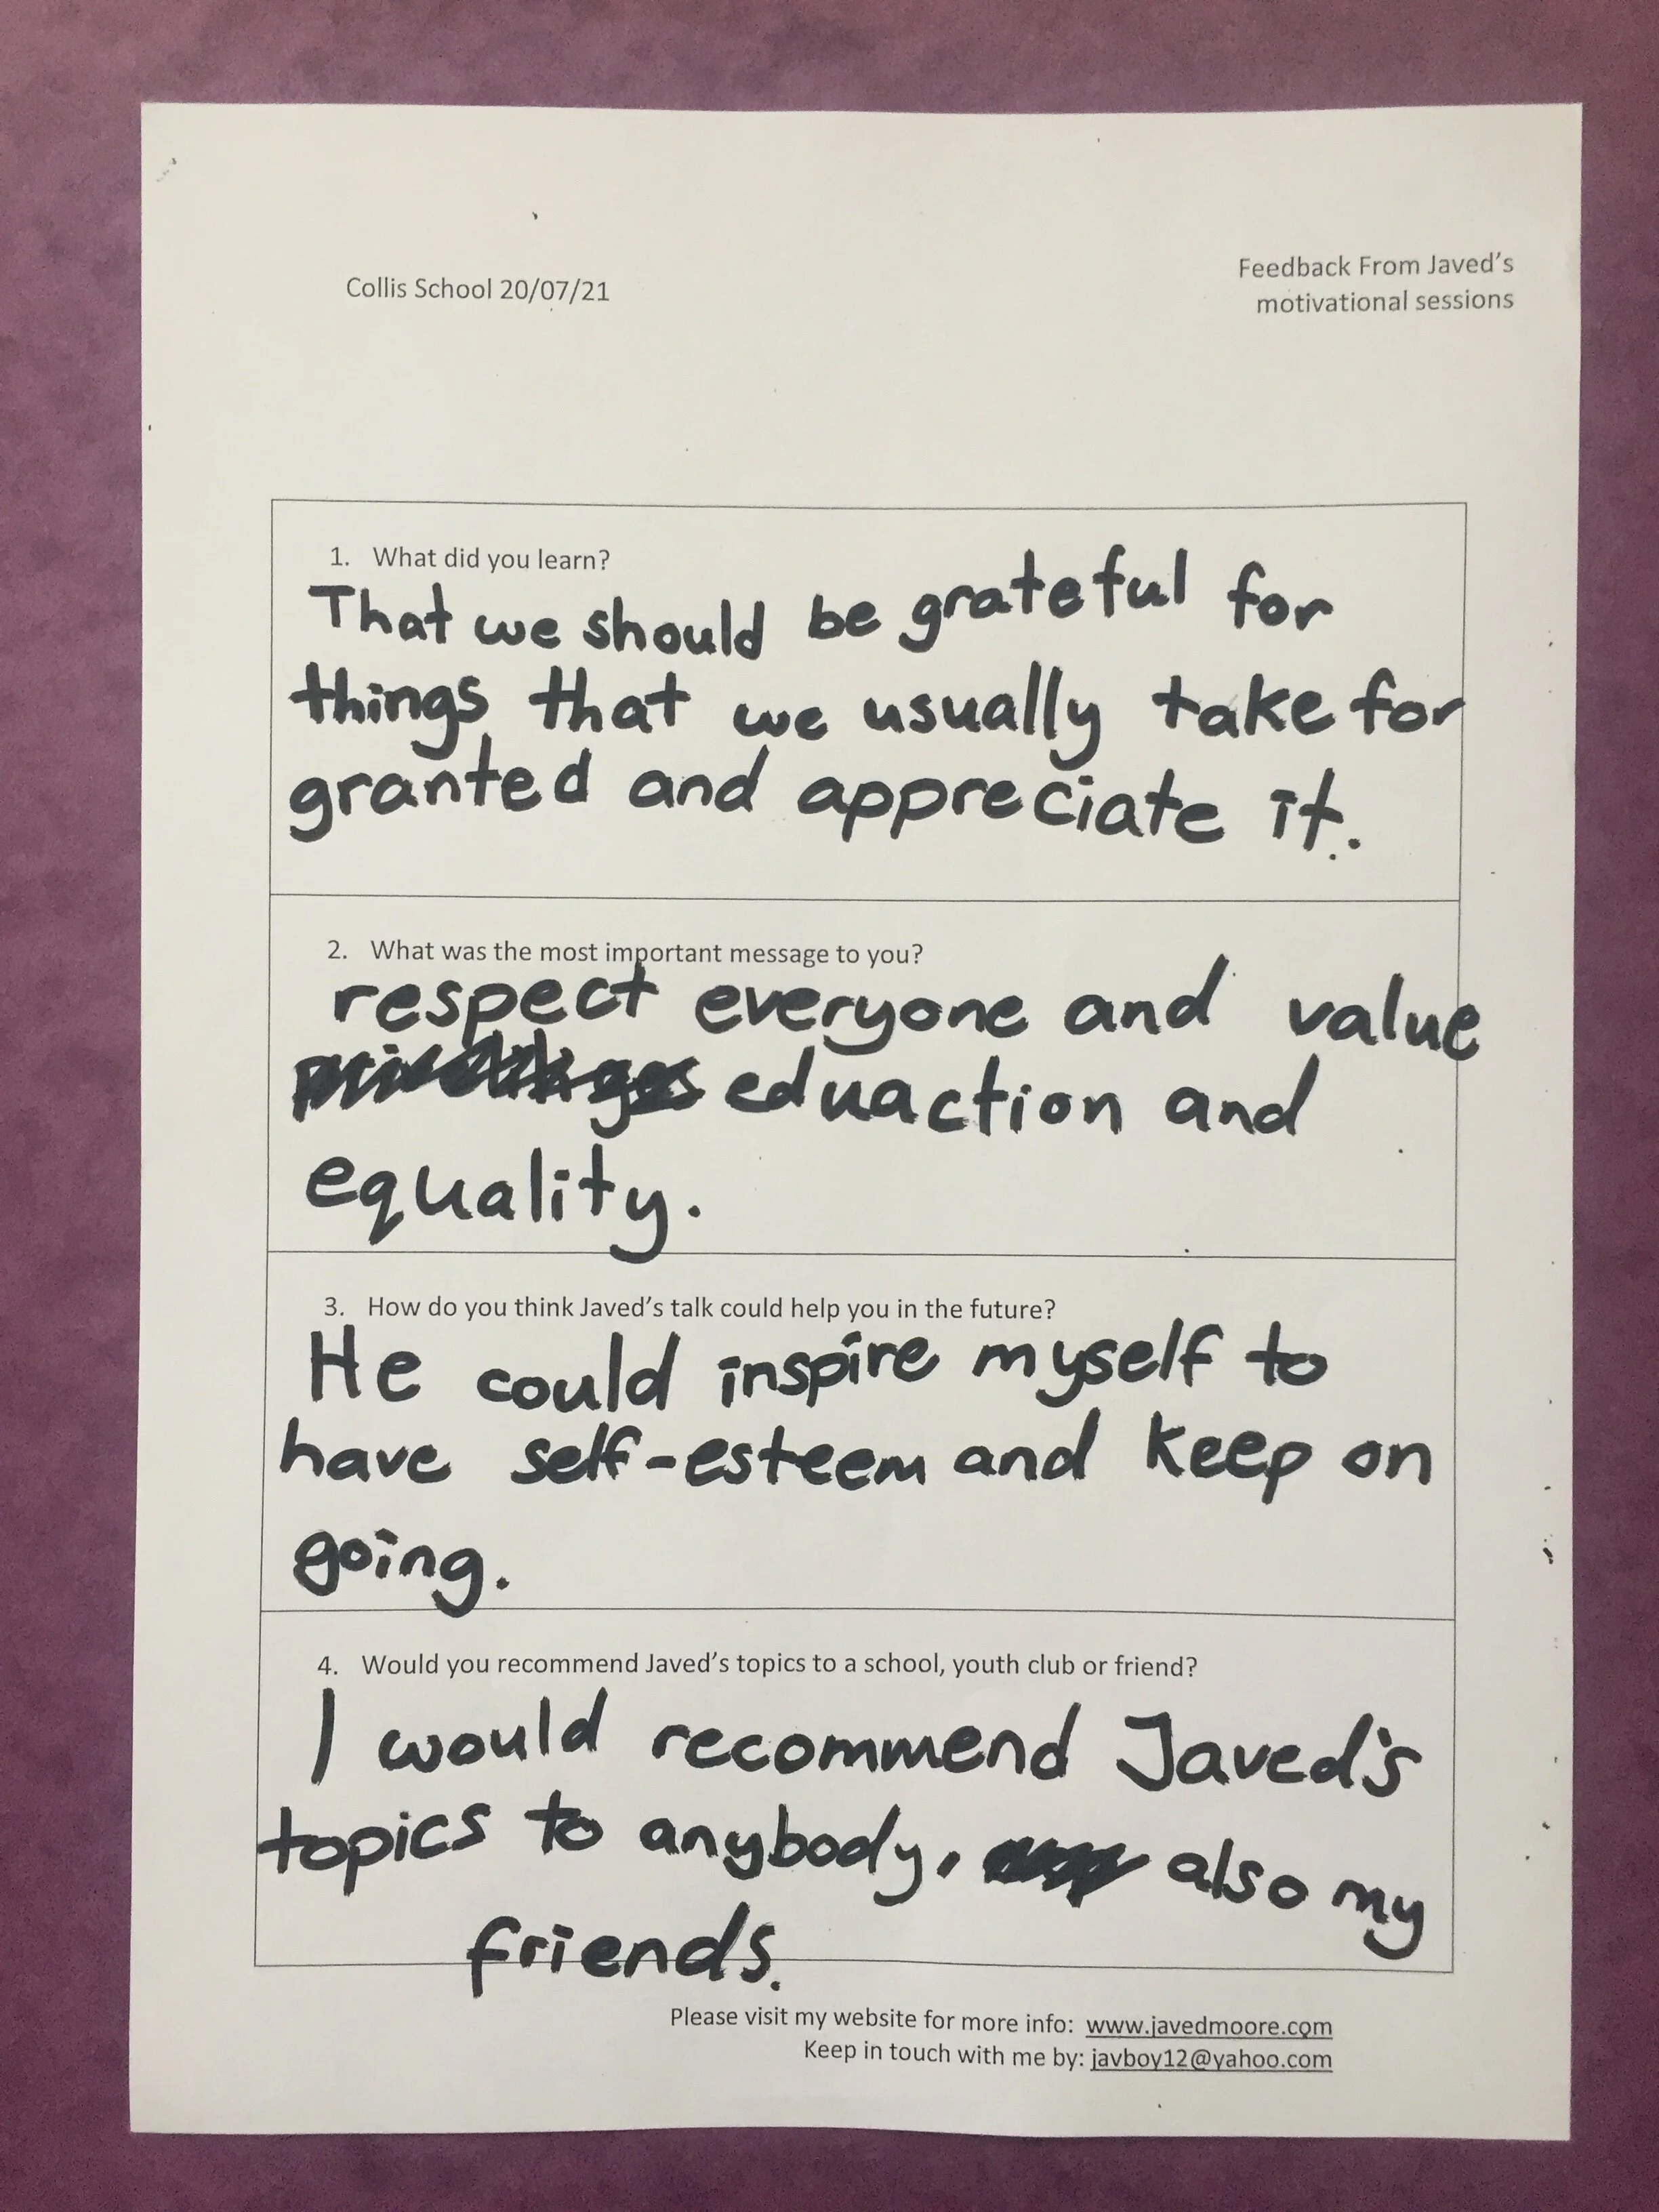 Collis School 20/07/21
Feedback From Javed's
motivational sessions
1. What did you learn?
That we should be grateful for
things that we usually take for
granted and appreciate it.
2. What was the most important message to you?
respect everyone and value
eduaction and
equality.
3. How do you think Javed's talk could help you in the future?
He could inspire myself to
have self-esteem and keep on
going.
4. Would you recommend Javed's topics to a school, youth club or friend?
I would recommend Javed's
topics to anybody, also my
friends.
Please visit my website for more info: www.javedmoore.com
Keep in touch with me by: javboy12@yahoo.com